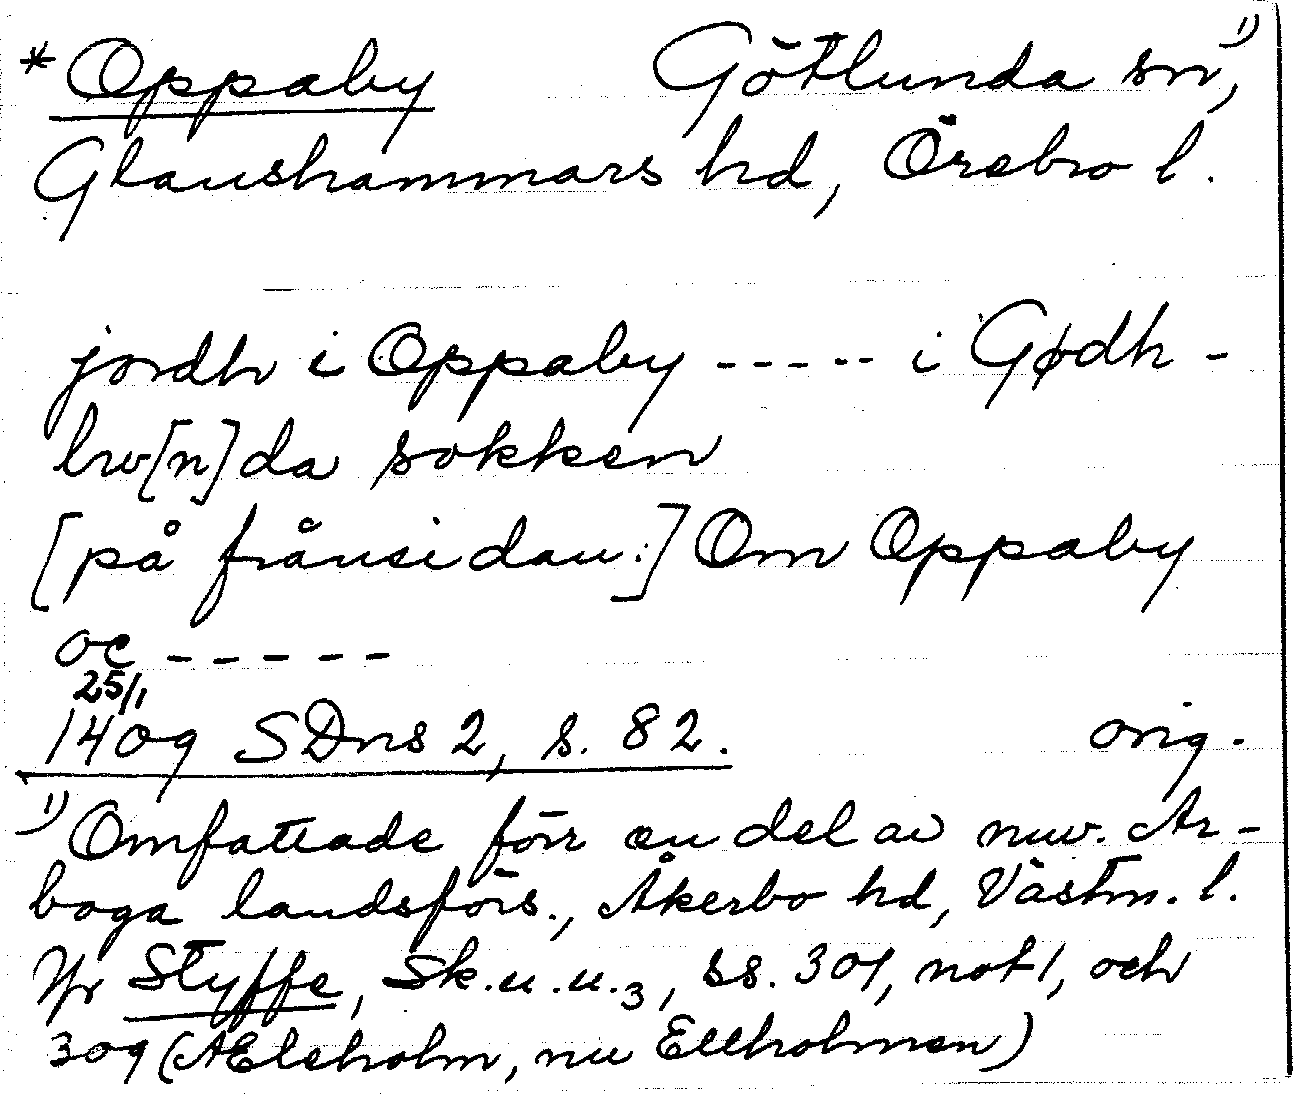 *Oppaby Götlunda sn,¹⁾
Glanshammars hd, Örebro l.
jordh i Oppaby ----- i Gødh-
lw[n]da sokken
[på frånsidan:] Om Oppaby
oc -----
25/1
1409 SDns 2, s. 82. orig.
¹⁾ Omfattade förr en del av nuv. Ar-
boga landsförs., Åkerbo hd, Västm. l.
Jfr Styffe, Sk.u.u.₃, ss. 301, not 1, och
309 (Ælsholm, nu Ellholmen)